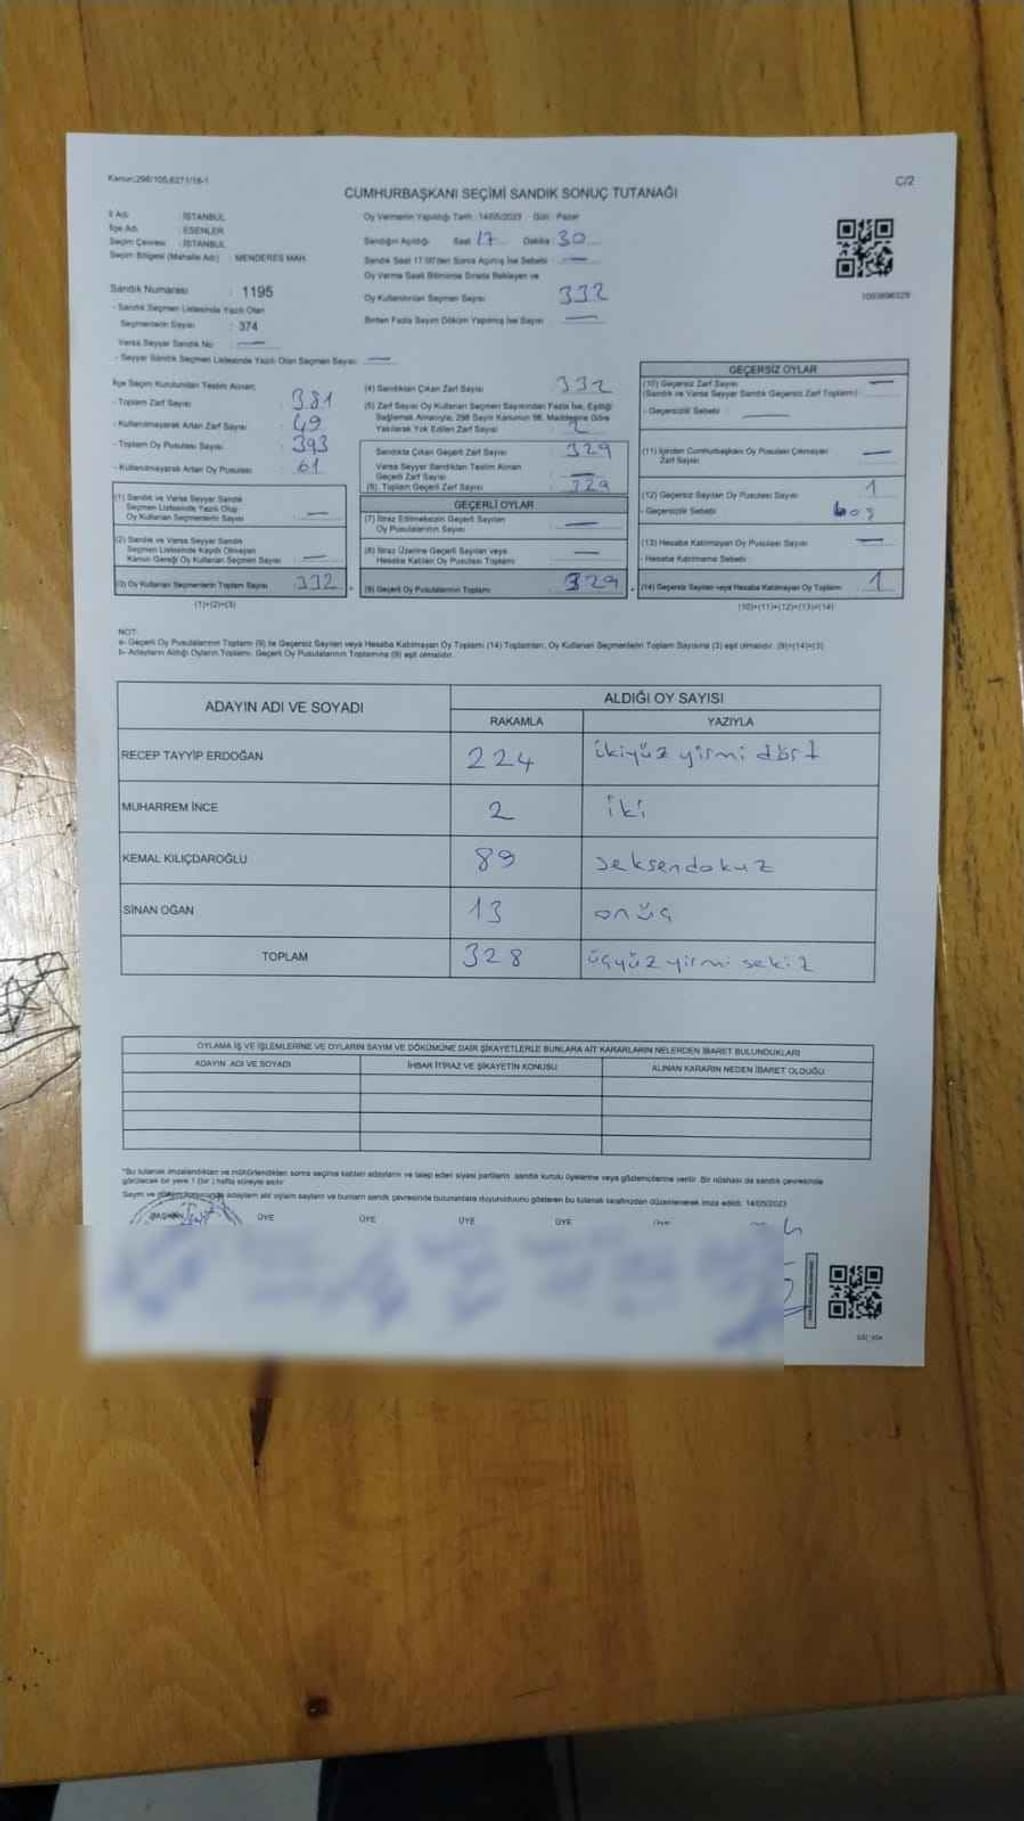 Kanun:298/105,6271/16-1
C/2
CUMHURBAŞKANI SEÇİMİ SANDIK SONUÇ TUTANAĞI
İl Adı : İSTANBUL
İlçe Adı : ESENLER
Seçim Çevresi : İSTANBUL
Seçim Bölgesi (Mahalle Adı) : MENDERES MAH.
Sandık Numarası : 1195
- Sandık Seçmen Listesinde Yazılı Olan
Seçmenlerin Sayısı : 374
Varsa Seyyar Sandık No :
- Seyyar Sandık Seçmen Listesinde Yazılı Olan Seçmen Sayısı
Oy Vermenin Yapıldığı Tarih : 14/05/2023 Gün : Pazar
Sandığın Açıldığı Saat 17 Dakika 30
Sandık Saat 17.00'den Sonra Açılmış İse Sebebi
Oy Verme Saati Bitiminde Sırada Bekleyen ve
Oy Kullandırılan Seçmen Sayısı 332
Birden Fazla Sayım Döküm Yapılmış İse Sayısı
1093896329
İlçe Seçim Kurulundan Teslim Alınan;
- Toplam Zarf Sayısı : 381
- Kullanılmayarak Artan Zarf Sayısı : 49
- Toplam Oy Pusulası Sayısı : 393
- Kullanılmayarak Artan Oy Pusulası : 61
(1) Sandık ve Varsa Seyyar Sandık
Seçmen Listesinde Yazılı Olup
Oy Kullanan Seçmenlerin Sayısı
(2) Sandık ve Varsa Seyyar Sandık
Seçmen Listesinde Kaydı Olmayan
Kanun Gereği Oy Kullanan Seçmen Sayısı
(3) Oy Kullanan Seçmenlerin Toplam Sayısı 332
(1)+(2)=(3)
(4) Sandıktan Çıkan Zarf Sayısı 332
(5) Zarf Sayısı Oy Kullanan Seçmen Sayısından Fazla İse, Eşitliği
Sağlamak Amacıyla, 298 Sayılı Kanunun 98. Maddesine Göre
Yakılarak Yok Edilen Zarf Sayısı 2
Sandıkta Çıkan Geçerli Zarf Sayısı 329
Varsa Seyyar Sandıktan Teslim Alınan
Geçerli Zarf Sayısı
(6) Toplam Geçerli Zarf Sayısı 329
GEÇERLİ OYLAR
(7) İtiraz Edilmeksizin Geçerli Sayılan
Oy Pusulalarının Sayısı
(8) İtiraz Üzerine Geçerli Sayılan veya
Hesaba Katılan Oy Pusulası Toplamı
(9) Geçerli Oy Pusulalarının Toplamı 329
GEÇERSİZ OYLAR
(10) Geçersiz Zarf Sayısı
(Sandık ve Varsa Seyyar Sandık Geçersiz Zarf Toplamı)
- Geçersizlik Sebebi
(11) İçinden Cumhurbaşkanı Oy Pusulası Çıkmayan
Zarf Sayısı
(12) Geçersiz Sayılan Oy Pusulası Sayısı 1
- Geçersizlik Sebebi boş
(13) Hesaba Katılmayan Oy Pusulası Sayısı
- Hesaba Katılmama Sebebi
(14) Geçersiz Sayılan veya Hesaba Katılmayan Oy Toplamı 1
(10)+(11)+(12)+(13)=(14)
NOT:
a- Geçerli Oy Pusulalarının Toplamı (9) ile Geçersiz Sayılan veya Hesaba Katılmayan Oy Toplamı (14) Toplamları, Oy Kullanan Seçmenlerin Toplam Sayısına (3) eşit olmalıdır. (9)+(14)=(3)
b- Adayların Aldığı Oyların Toplamı, Geçerli Oy Pusulalarının Toplamına (9) eşit olmalıdır.
ADAYIN ADI VE SOYADI ALDIĞI OY SAYISI
RAKAMLA YAZIYLA
RECEP TAYYİP ERDOĞAN 224 ikiyüz yirmi dört
MUHARREM İNCE 2 iki
KEMAL KILIÇDAROĞLU 89 seksendokuz
SİNAN OĞAN 13 onüç
TOPLAM 328 üçyüz yirmi sekiz
OYLAMA İŞ VE İŞLEMLERİNE VE OYLARIN SAYIM VE DÖKÜMÜNE DAİR ŞİKAYETLERLE BUNLARA AİT KARARLARIN NELERDEN İBARET BULUNDUKLARI
ADAYIN ADI VE SOYADI İHBAR İTİRAZ VE ŞİKAYETİN KONUSU ALINAN KARARIN NEDEN İBARET OLDUĞU
*Bu tutanak imzalandıktan ve mühürlendikten sonra seçime katılan adayların ve talep eden siyasi partilerin sandık kurulu üyelerine veya gözlemcilerine verilir. Bir nüshası da sandık çevresinde
görülecek bir yere 1 (bir) hafta süreyle asılır
Sayım ve döküm sonucunda adayların aldığı oyların sayılarını ve bunların sandık çevresinde bulunanlara duyurulduğunu gösteren bu tutanak tarafımızdan düzenlenerek imza edildi. 14/05/2023
BAŞKAN ÜYE ÜYE ÜYE ÜYE ÜYE